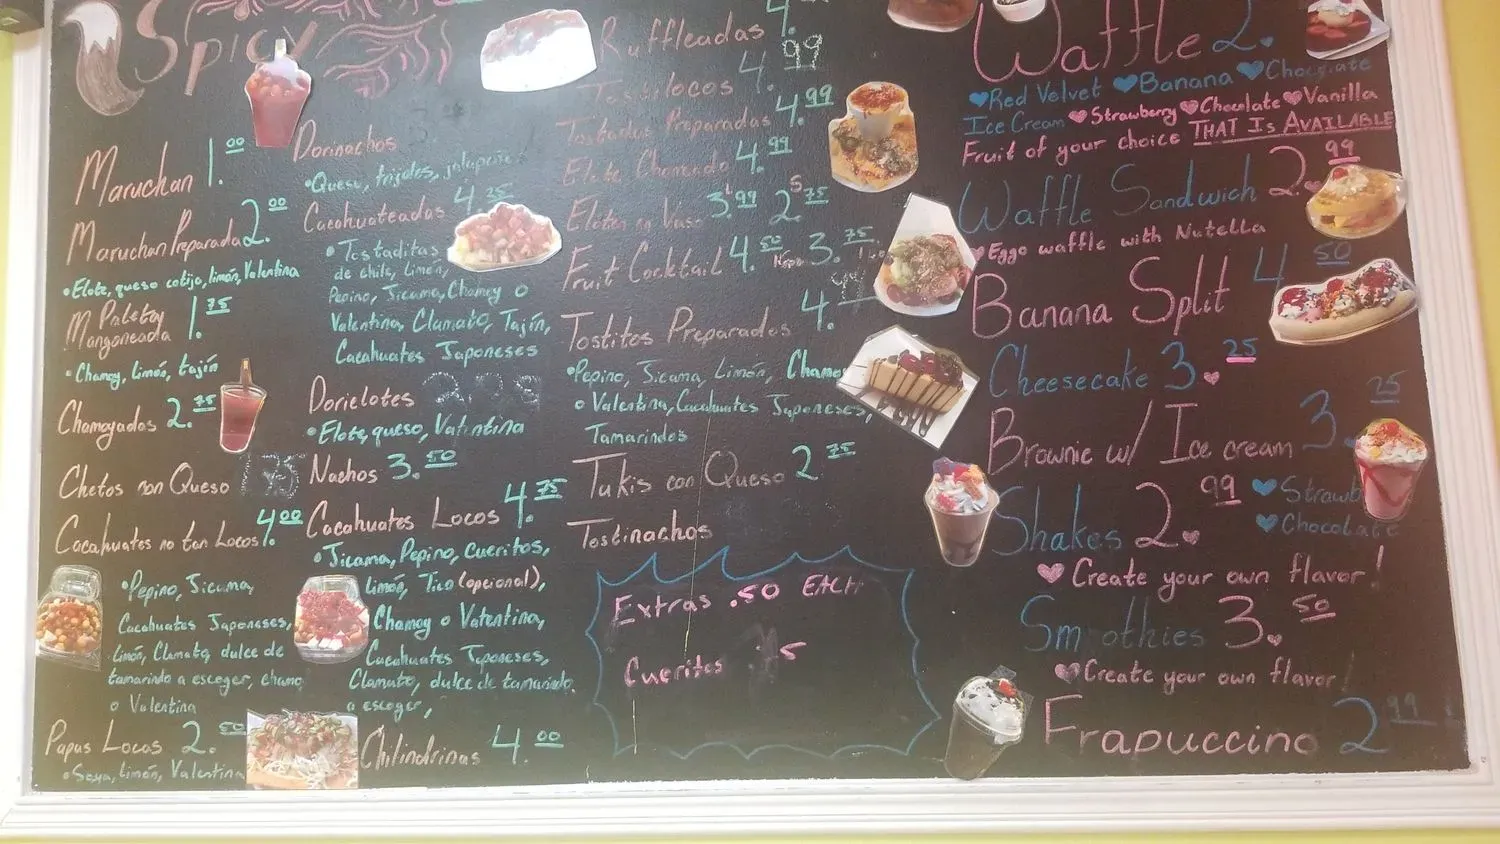 Spicy
Maruchan 1.00
Maruchan Preparada 2.00
• Elote, queso cotija, limón, Valentina
Paleta
Mangoneada 1.75
• Chamoy, limón, tajín
Chamoyadas 2.75
Chetos con Queso
Cacahuates no tan Locos 4.00
• Pepino, Jicama,
Cacahuates Japoneses,
limón, Clamato, dulce de
tamarindo a escoger, chamo
o Valentina
Papas Locas 2.50
• Soya, limón, Valentina
Dorinachos
• Queso, frijoles, jalapeño
Cacahuateadas 4.25
• Tostaditas
de chile, limón,
Pepino, Jicama, Chamoy o
Valentina, Clamato, Tajín,
Cacahuates Japoneses
Dorielotes
• Elote, queso, Valentina
Nachos 3.50
Cacahuates Locos 4.75
• Jicama, Pepino, cueritos,
limón, Tico (opcional),
Chamoy o Valentina,
Cacahuates Japoneses,
Clamato, dulce de tamarindo
a escoger,
Chilindrinas 4.00
Ruffleadas 4.
Tostilocos 4.99
Tostadas Preparadas 4.99
Elote Chaneado 4.99
Elotes en Vaso L 3.99 S 2.75
Fruit Cocktail 4.50 3.75
Tostitos Preparados 4.
• Pepino, Jicama, Limón, Chamoy
o Valentina, Cacahuates Japoneses,
Tamarindos
Takis con Queso 2.75
Tostinachos
Extras .50 EACH
Cueritos
Waffle 2.
Red Velvet Banana Chocolate
Ice Cream Strawberry Chocolate Vanilla
Fruit of your choice THAT Is AVAILABLE
Waffle Sandwich 2.99
Eggo waffle with Nutella
Banana Split 4.50
Cheesecake 3.25
Brownie w/ Ice cream 3.25
Shakes 2.99 Strawb
Chocolate
Create your own flavor!
Smoothies 3.50
Create your own flavor!
Frapuccino 2.99